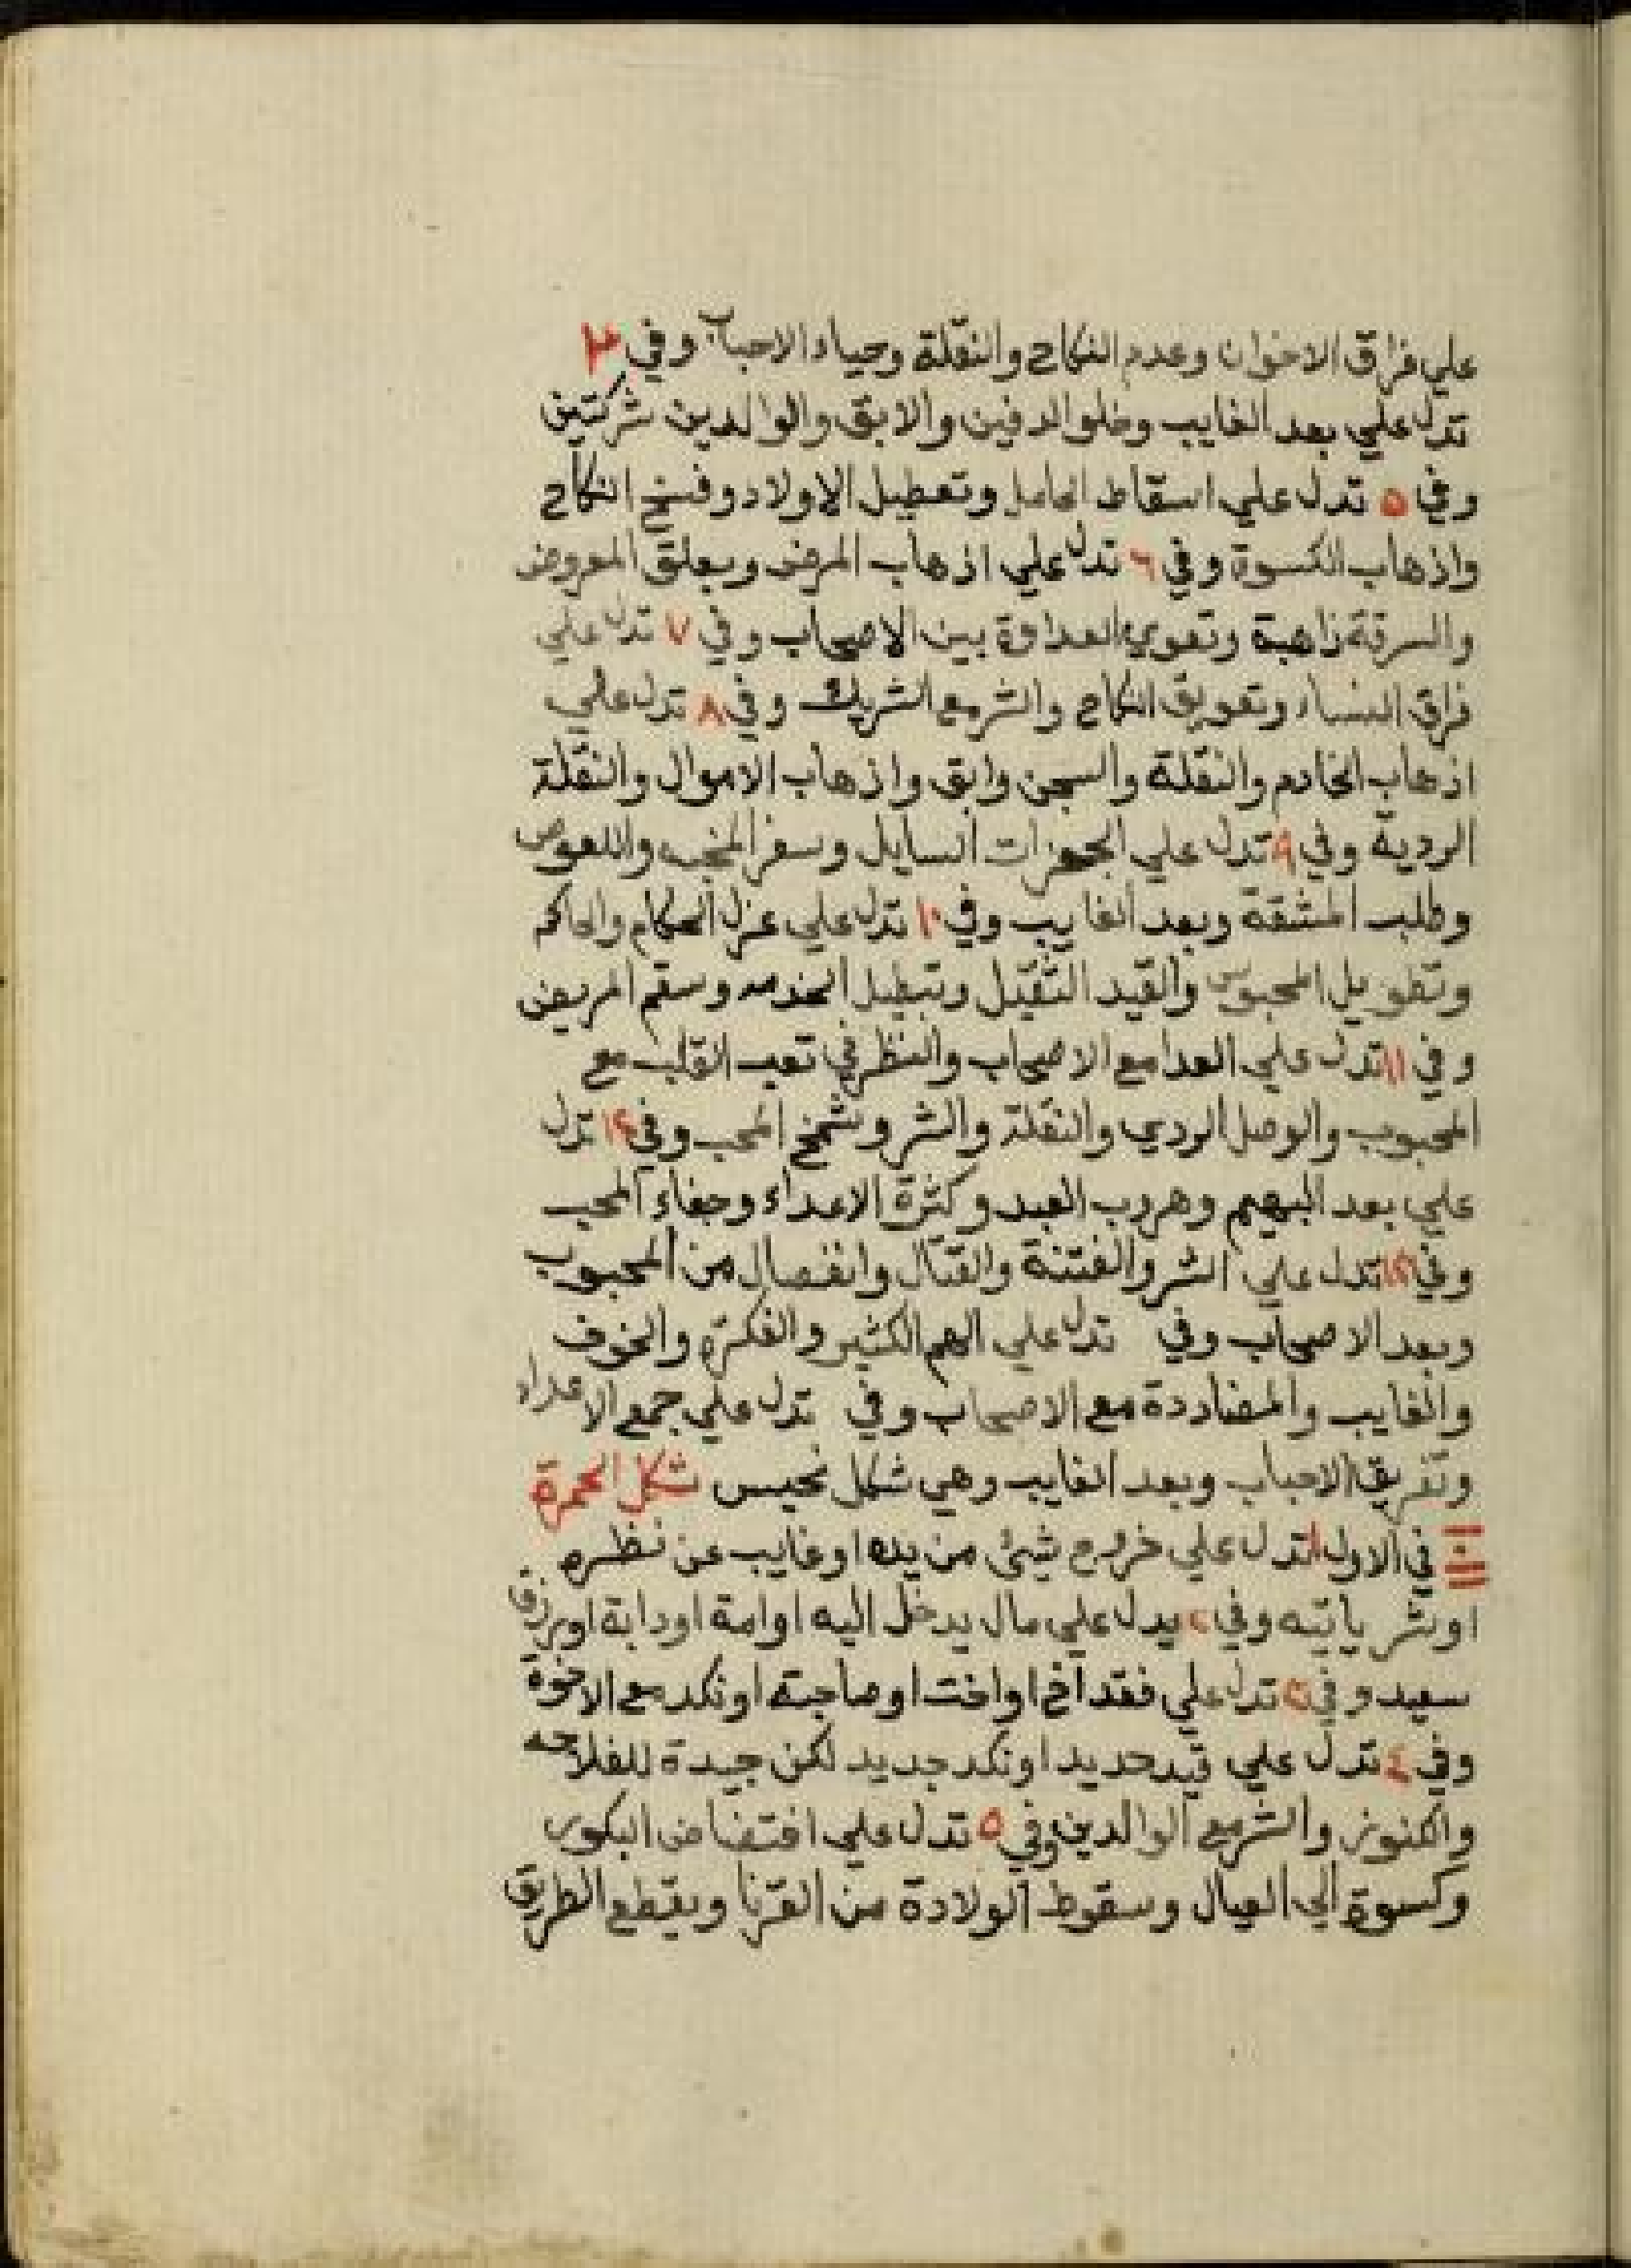 علي فراق الاخوان وعدم النكاح والنقلة وجياد الاحباب وفي ٣
تدل علي بعد الغايب وخلو الدفين والابق والوالدين شركتين
وفي ٥ تدل علي اسقاط الحامل وتعطيل الاولاد وفسخ النكاح
واذهاب الكسوة وفي ٦ تدل علي اذهاب المرض ويعلق المعروض
والسرقة زاهبة العداوة بين الاصحاب وفي ٧ تدل علي
فراق النساء وتعويق النكاح والشر مع الشريك وفي ٨ تدل علي
اذهاب الخادم والنقلة والسجن وابق واذهاب الاموال والنقلة
الردية وفي ٩ تدل علي السايل وسفر واللصوص
وطلب المشقة وبعد الغايب وفي ١٠ تدل علي عزل الحكام والحاكم
وتطويل المحبوس والقيد الثقيل وتبطيل الخدمه وسقم المريض
وفي ١١ تدل علي العدا مع الاصحاب والنظر في تعب القلب مع
المحبوب والوصل الردي والنقلة والشر المحب وفي ١٢ تدل
علي بعد البهيم وهروب العبد وكثرة الاعداء وجفاء المحب
وفي تدل علي الشر والفتنة والقتال وانفصال من المحبوب
وبعد الاصحاب وفي تدل علي الهم الكثير والفكره والخوف
والغايب والمضاددة مع الاصحاب وفي تدل علي جمع الاعداء
وتفريق الاحباب وبعد الغايب وهي شكل نحيس شكل الحمرة
في الاول ١ تدل علي خروج شيئ من يده او غايب عن نظره
او شر ياتيه وفي ٢ يدل علي مال يدخل اليه او امة او دابة او رزق
سعيد وفي تدل علي فقد اخ او اخت او صاحبة او نكد مع الاخوة
وفي ٤ تدل علي قيد حديد او نكد جديد لكن جيدة للفلاحه
والكنوز والشر مع الوالدين وفي ٥ تدل علي افتضاض البكور
وكسوة الي العيال وسقوط الولادة من القرنا ويقطع الطريق